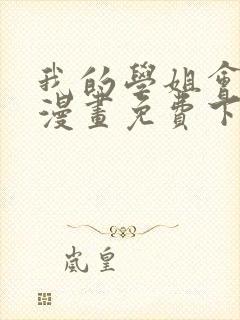 我的學姐會
漫畫免費下
嵐皇